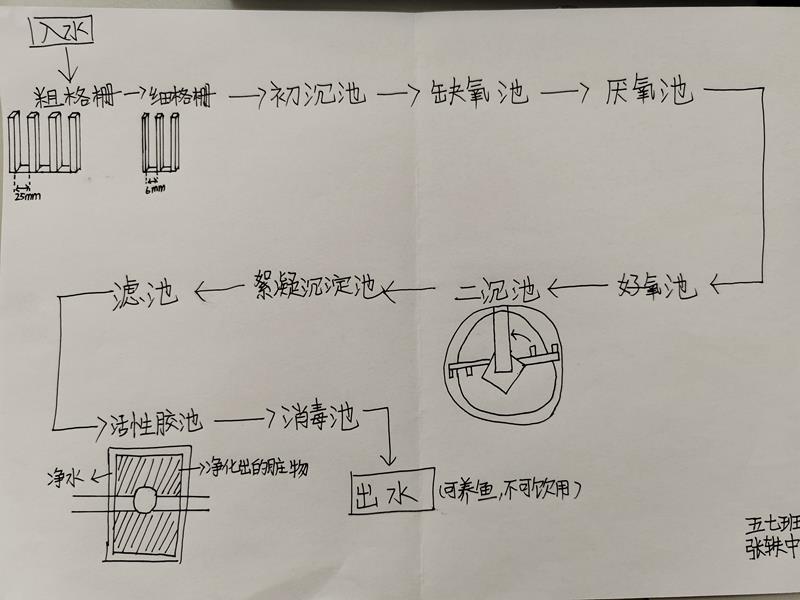 入水
粗格栅 细格栅 初沉池 缺氧池 厌氧池
25mm 6mm
滤池 絮凝沉淀池 二沉池 好氧池
活性胶池 消毒池
净水 净化出的脏物
出水 (可养鱼,不可饮用)
五七班
张轶中